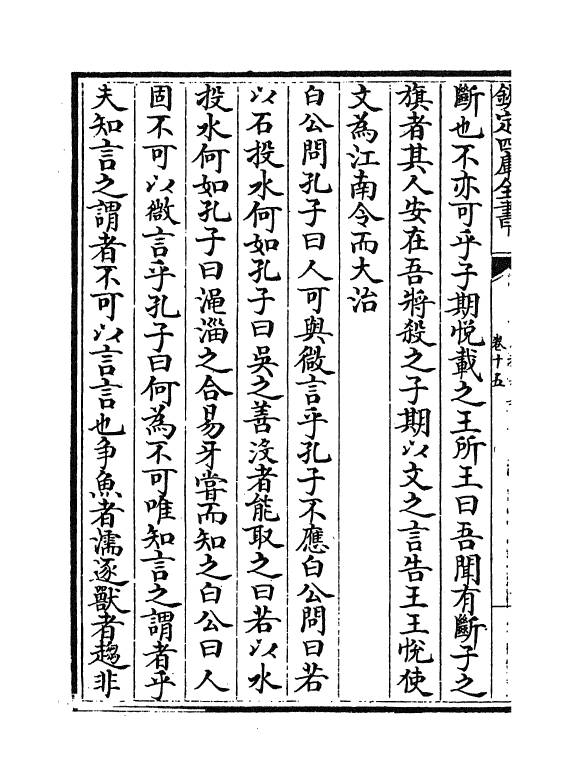 欽定四庫全書
卷十五
斷也不亦可乎子期悅載之王所王曰吾聞有斷子之
旗者其人安在吾將殺之子期以文之言告王王悅使
文為江南令而大治
白公問孔子曰人可與微言乎孔子不應白公問曰若
以石投水何如孔子曰吳之善沒者能取之曰若以水
投水何如孔子曰渑淄之合易牙嘗而知之白公曰人
固不可以微言乎孔子曰何為不可唯知言之謂者乎
夫知言之謂者不可以言言也争魚者濡逐獸者趨非